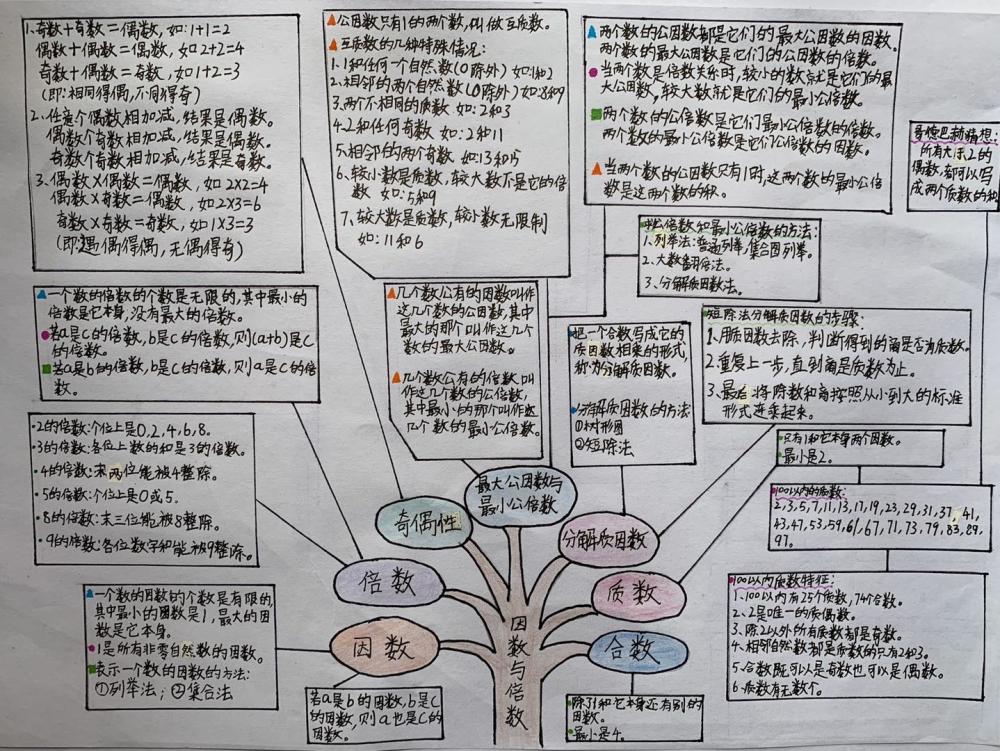 1.奇数＋奇数＝偶数，如：1+1=2
偶数＋偶数＝偶数，如2+2=4
奇数＋偶数＝奇数，如1+2=3
（即：相同得偶，不同得奇）
2.任意个偶数相加减，结果是偶数。
偶数个奇数相加减，结果是偶数。
奇数个奇数相加减，结果是奇数。
3.偶数×偶数＝偶数，如2×2=4
偶数×奇数＝偶数，如2×3=6
奇数×奇数＝奇数，如1×3=3
（即：遇偶得偶，无偶得奇）
公因数只有1的两个数，叫做互质数。
互质数的几种特殊情况：
1.1和任何一个自然数（0除外）如：1和2
2.相邻的两个自然数（0除外）如：8和9
3.两个不相同的质数 如：2和3
4.2和任何奇数 如：2和11
5.相邻的两个奇数 如：13和15
6.较小数是质数，较大数不是它的倍
数 如：5和9
7.较大数是质数，较小数无限制
如：11和6
两个数的公因数都是它们的最大公因数的因数。
两个数的最大公因数是它们的公因数的倍数。
当两个数是倍数关系时，较小的数就是它们的最
大公因数，较大数就是它们的最小公倍数。
两个数的公倍数是它们最小公倍数的倍数。
两个数的最小公倍数是它们公倍数的因数。
当两个数的公因数只有1时，这两个数的最小公倍
数是这两个数的积。
哥德巴赫猜想：
所有大于2的
偶数，都可以写
成两个质数的和
求公倍数和最小公倍数的方法：
1.列举法：普通列举，集合图列举。
2.大数翻倍法。
3.分解质因数法。
一个数的倍数的个数是无限的，其中最小的
倍数是它本身，没有最大的倍数。
若a是c的倍数，b是c的倍数，则（a+b）是c
的倍数。
若a是b的倍数，b是c的倍数，则a是c的倍
数。
几个数公有的因数叫作
这几个数的公因数，其中
最大的那个叫作这几个
数的最大公因数。
几个数公有的倍数叫
作这几个数的公倍数，
其中最小的那个叫作这
几个数的最小公倍数。
把一个合数写成它的
质因数相乘的形式，
称为分解质因数。
分解质因数的方法：
①树形图
②短除法
短除法分解质因数的步骤：
1.用质因数去除，判断得到的商是否为质数。
2.重复上一步，直到商是质数为止。
3.最后将除数和商按照从小到大的标准
形式连乘起来。
2的倍数：个位上是0，2，4，6，8。
3的倍数：各位上数的和是3的倍数。
4的倍数：末两位能被4整除。
5的倍数：个位上是0或5。
8的倍数：末三位能被8整除。
9的倍数：各位数字和能被9整除。
只有1和它本身两个因数。
最小是2。
100以内的质数：
2，3，5，7，11，13，17，19，23，29，31，37，41，
43，47，53，59，61，67，71，73，79，83，89，
97。
最大公因数与
最小公倍数
奇偶性
分解质因数
倍数
质数
因数
合数
因数与倍数
一个数的因数的个数是有限的，
其中最小的因数是1，最大的因
数是它本身。
1是所有非零自然数的因数。
表示一个数的因数的方法：
①列举法；②集合法
若a是b的因数，b是c
的因数，则a也是c的
因数。
除了1和它本身还有别的
因数。
最小是4。
100以内质数特征：
1.100以内有25个质数，74个合数。
2.2是唯一的质偶数。
3.除2以外所有质数都是奇数。
4.相邻自然数都是质数的只有2和3。
5.合数既可以是奇数也可以是偶数。
6.质数有无数个。